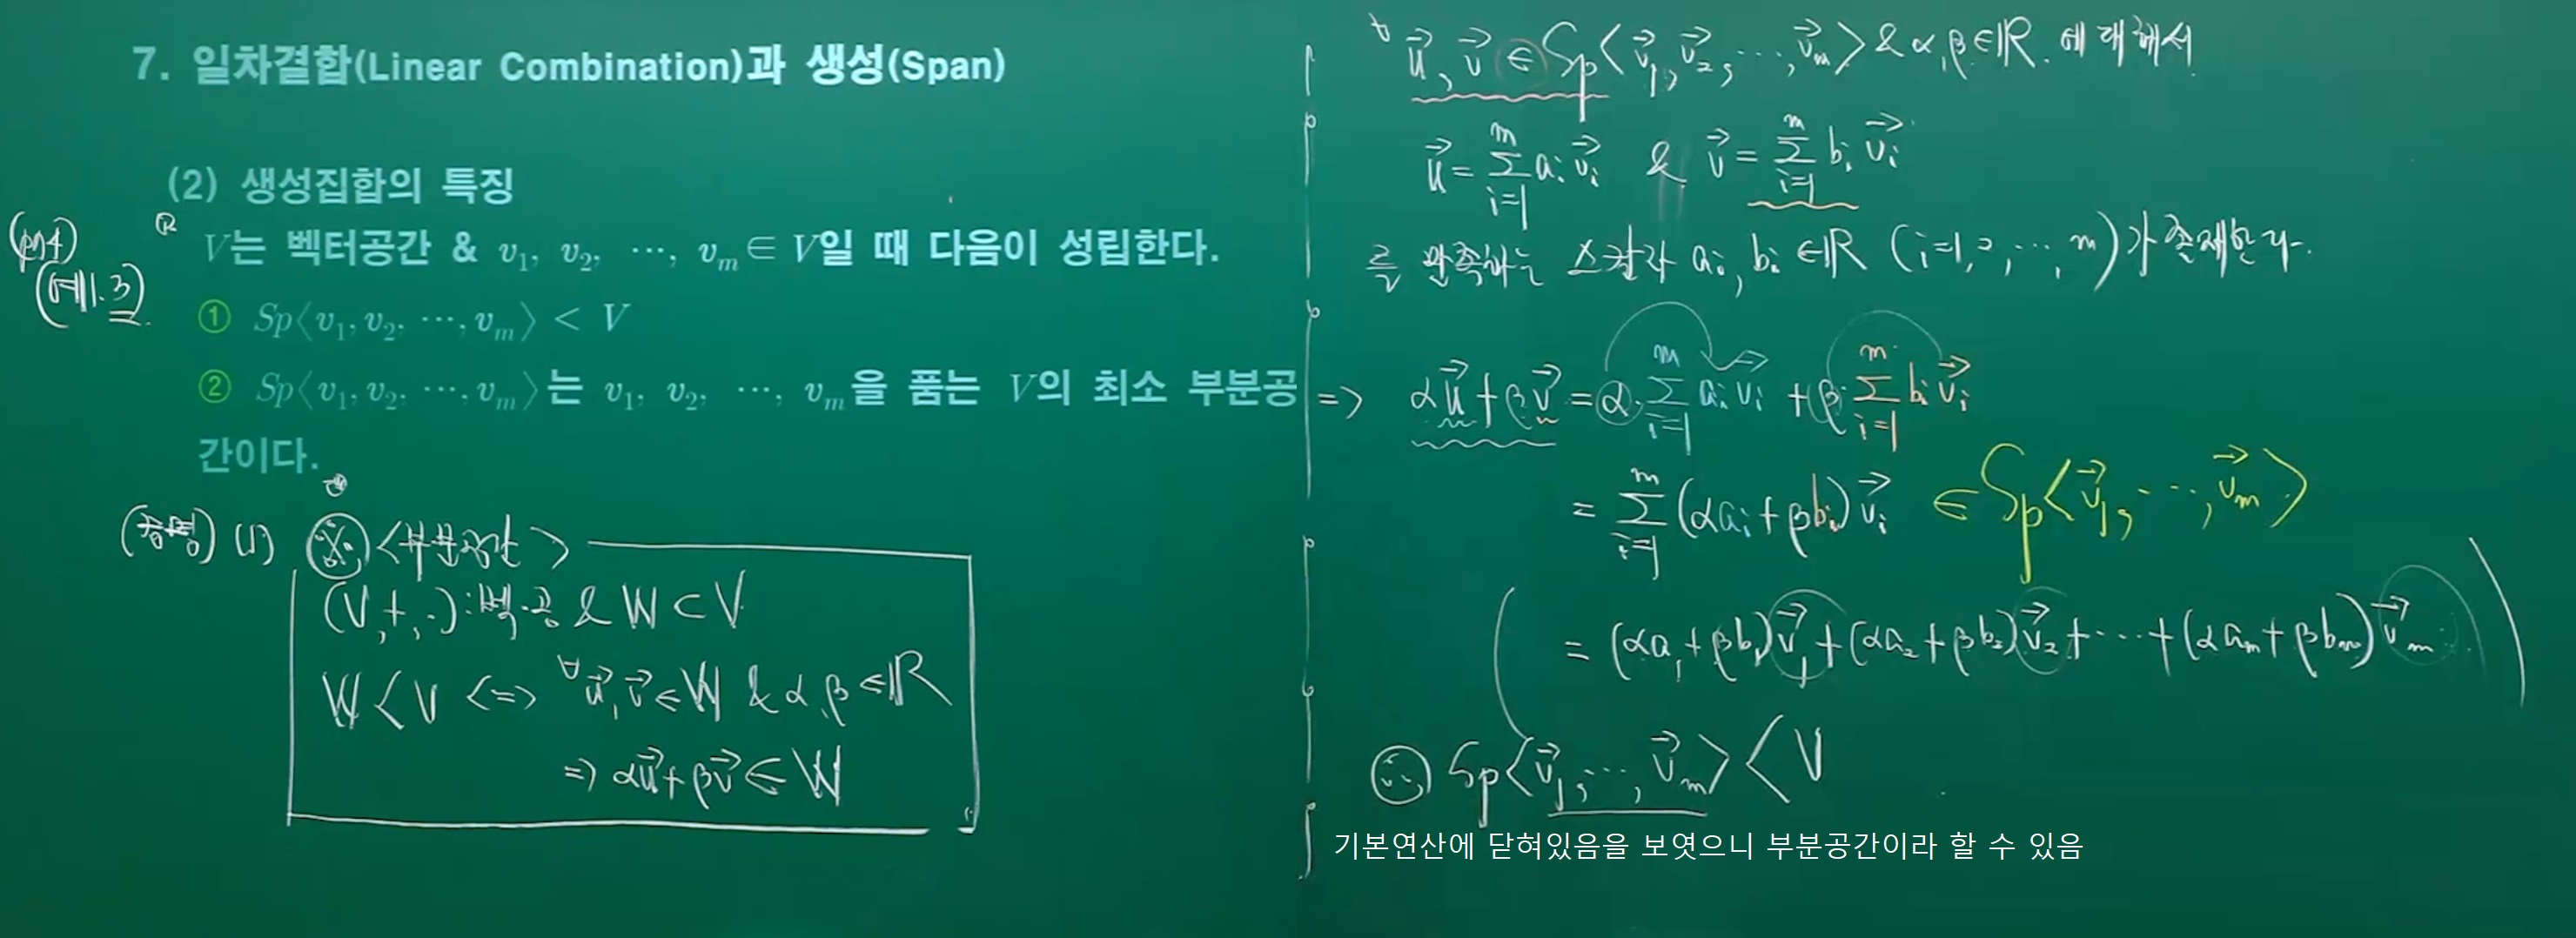 7. 일차결합(Linear Combination)과 생성(Span)
(2) 생성집합의 특징
(예1.3)
ⓡ V는 벡터공간 & v₁, v₂, ⋯, vₘ ∈ V일 때 다음이 성립한다.
① Sp⟨v₁, v₂, ⋯, vₘ⟩ < V
② Sp⟨v₁, v₂, ⋯, vₘ⟩는 v₁, v₂, ⋯, vₘ을 품는 V의 최소 부분공
간이다.
(증명) (1) <부분공간>
(V, +, ·) : 벡·공 & W ⊂ V
W < V <=> ∀u⃗, v⃗ ∈ W & α, β ∈ ℝ
=> αu⃗ + βv⃗ ∈ W
∀u⃗, v⃗ ∈ Sp⟨v⃗₁, v⃗₂, ⋯, v⃗ₘ⟩ & α, β ∈ ℝ. 에 대해서
u⃗ = Σᵢ₌₁ᵐ aᵢ v⃗ᵢ & v⃗ = Σᵢ₌₁ᵐ bᵢ v⃗ᵢ
를 만족하는 스칼라 aᵢ, bᵢ ∈ ℝ (i=1, 2, ⋯, m)가 존재한다.
=> αu⃗ + βv⃗ = α·Σᵢ₌₁ᵐ aᵢ v⃗ᵢ + β·Σᵢ₌₁ᵐ bᵢ v⃗ᵢ
= Σᵢ₌₁ᵐ (αaᵢ + βbᵢ) v⃗ᵢ ∈ Sp⟨v⃗₁, ⋯, v⃗ₘ⟩
= (αa₁ + βb₁) v⃗₁ + (αa₂ + βb₂) v⃗₂ + ⋯ + (αaₘ + βbₘ) v⃗ₘ
∴ Sp⟨v⃗₁, ⋯, v⃗ₘ⟩ < V
기본연산에 닫혀있음을 보엿으니 부분공간이라 할 수 있음